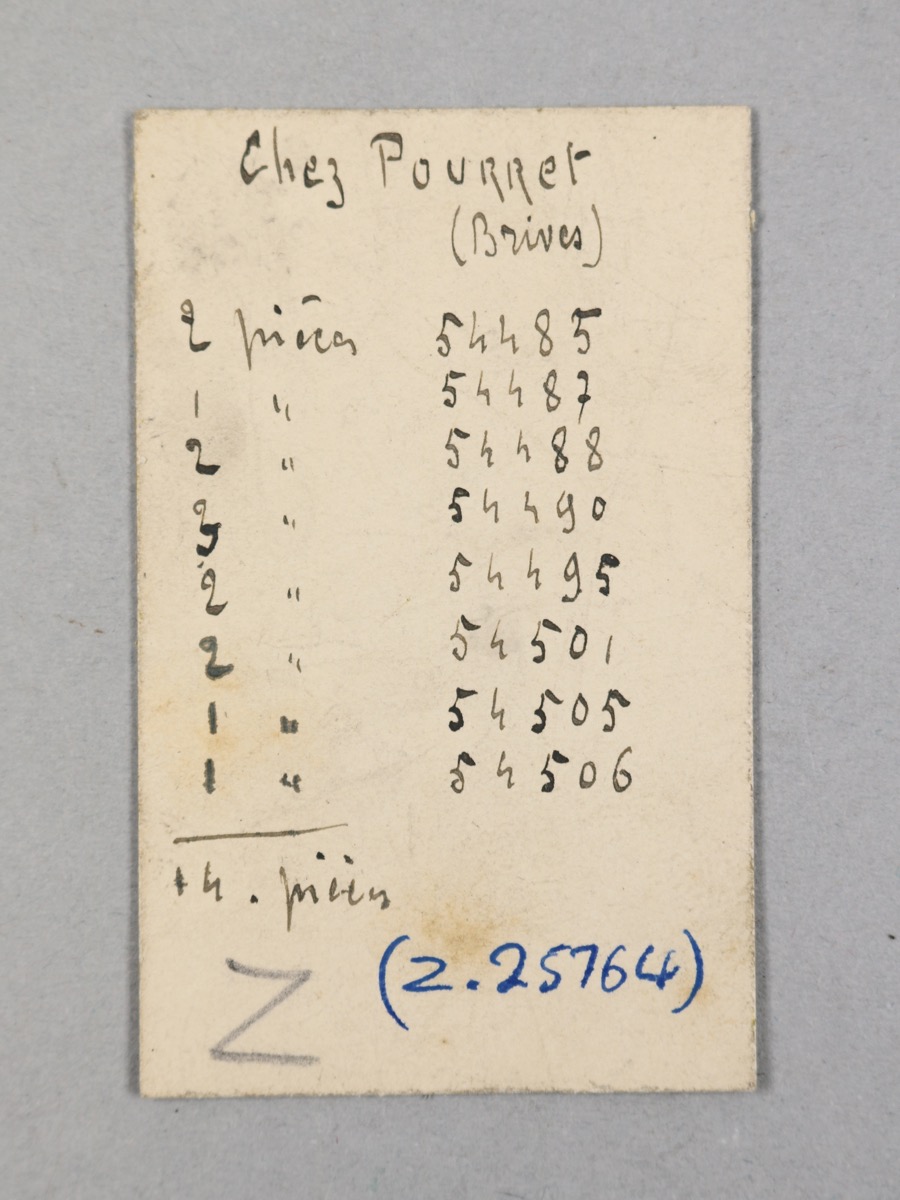 Chez Pourret
(Brives)
2 pièces 54485
1 " 54487
2 " 54488
3 " 54490
2 " 54495
2 " 54501
1 " 54505
1 " 54506
14. pièces
(Z.25764)
Z